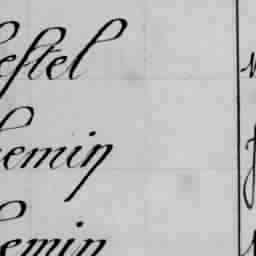 estel
hemin
hemin